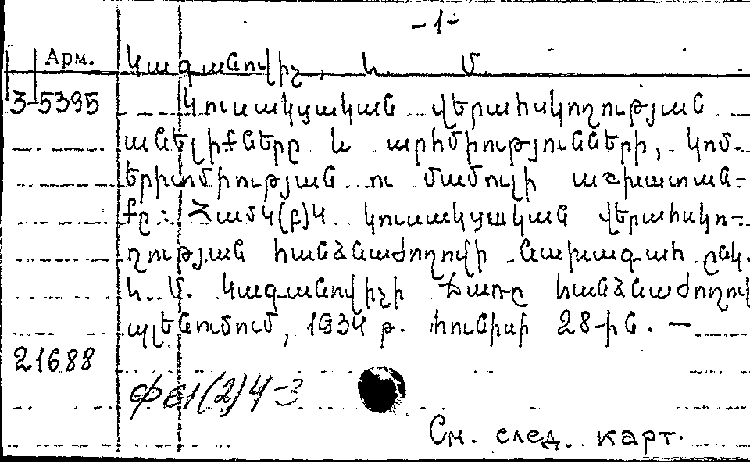 -1-
Арм.
Կագանովիչ, Լ. Մ.
3-5395
Կուսակցական վերահսկողության
անելիքները և արհմիությունների, կոմ-
երիտմիության ու մամուլի աշխատան-
քը: Համկ(բ)կ կուսակցական վերահսկո-
ղության հանձնաժողովի նախագահ ընկ.
Լ. Մ. Կագանովիչի ճառը հանձնաժողով
պլենումում, 1934 թ. հունիսի 28-ին. —
21688
См. след. карт.